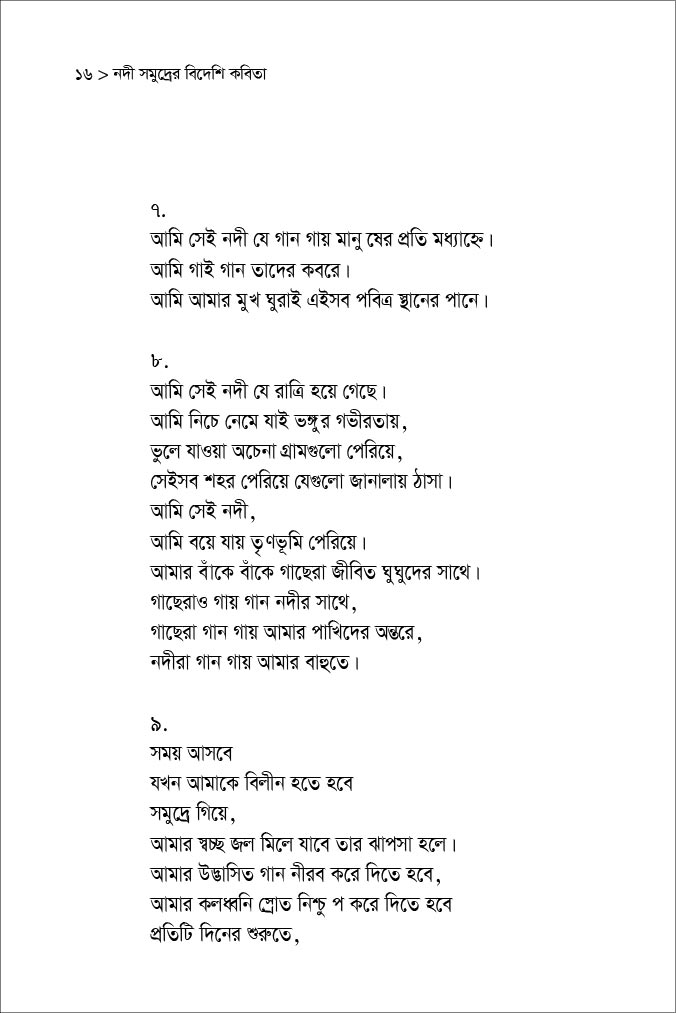 ১৬ > নদী সমুদ্রের বিদেশি কবিতা
৭.
আমি সেই নদী যে গান গায় মানু ষের প্রতি মধ্যাহ্নে।
আমি গাই গান তাদের কবরে।
আমি আমার মুখ ঘুরাই এইসব পবিত্র স্থানের পানে।
৮.
আমি সেই নদী যে রাত্রি হয়ে গেছে।
আমি নিচে নেমে যাই ভঙ্গুর গভীরতায়,
ভুলে যাওয়া অচেনা গ্রামগুলো পেরিয়ে,
সেইসব শহর পেরিয়ে যেগুলো জানালায় ঠাসা।
আমি সেই নদী,
আমি বয়ে যায় তৃণভূমি পেরিয়ে।
আমার বাঁকে বাঁকে গাছেরা জীবিত ঘুঘুদের সাথে।
গাছেরাও গায় গান নদীর সাথে,
গাছেরা গান গায় আমার পাখিদের অন্তরে,
নদীরা গান গায় আমার বাহুতে।
৯.
সময় আসবে
যখন আমাকে বিলীন হতে হবে
সমুদ্রে গিয়ে,
আমার স্বচ্ছ জল মিলে যাবে তার ঝাপসা হলে।
আমার উদ্ভাসিত গান নীরব করে দিতে হবে,
আমার কলধ্বনি স্রোত নিশ্চু প করে দিতে হবে
প্রতিটি দিনের শুরুতে,